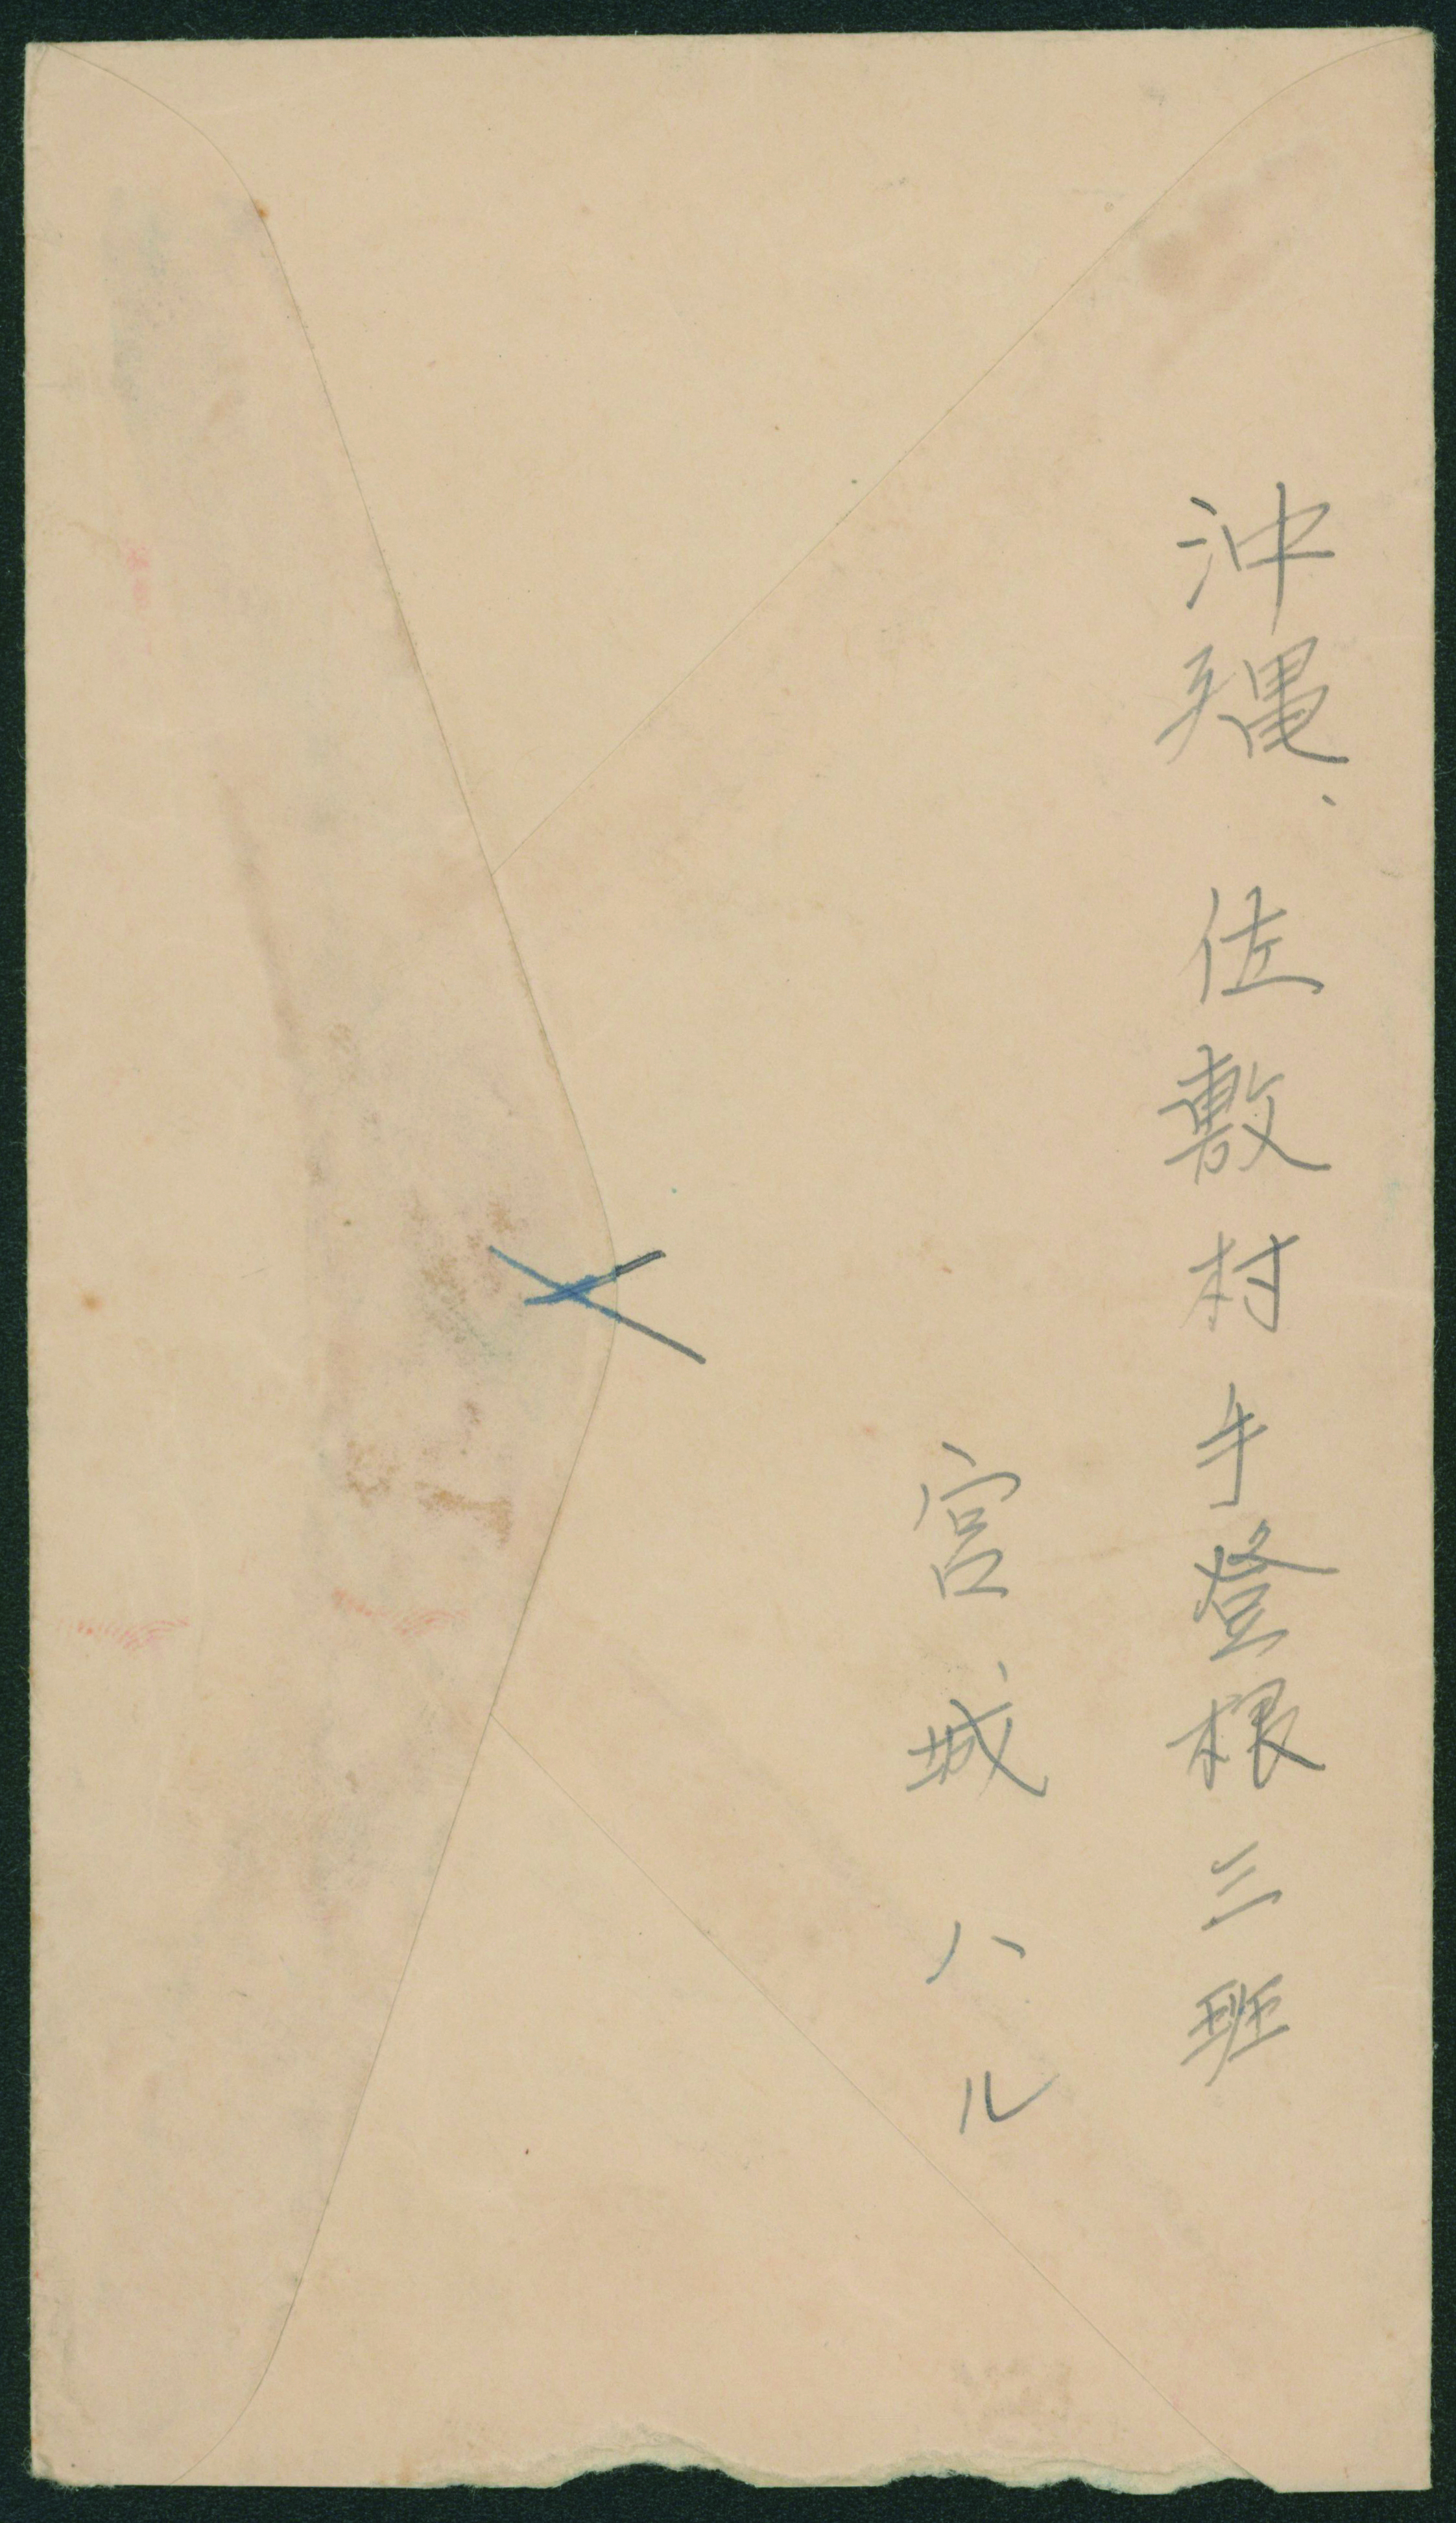 沖縄、佐敷村手登根三班
宮城ハル